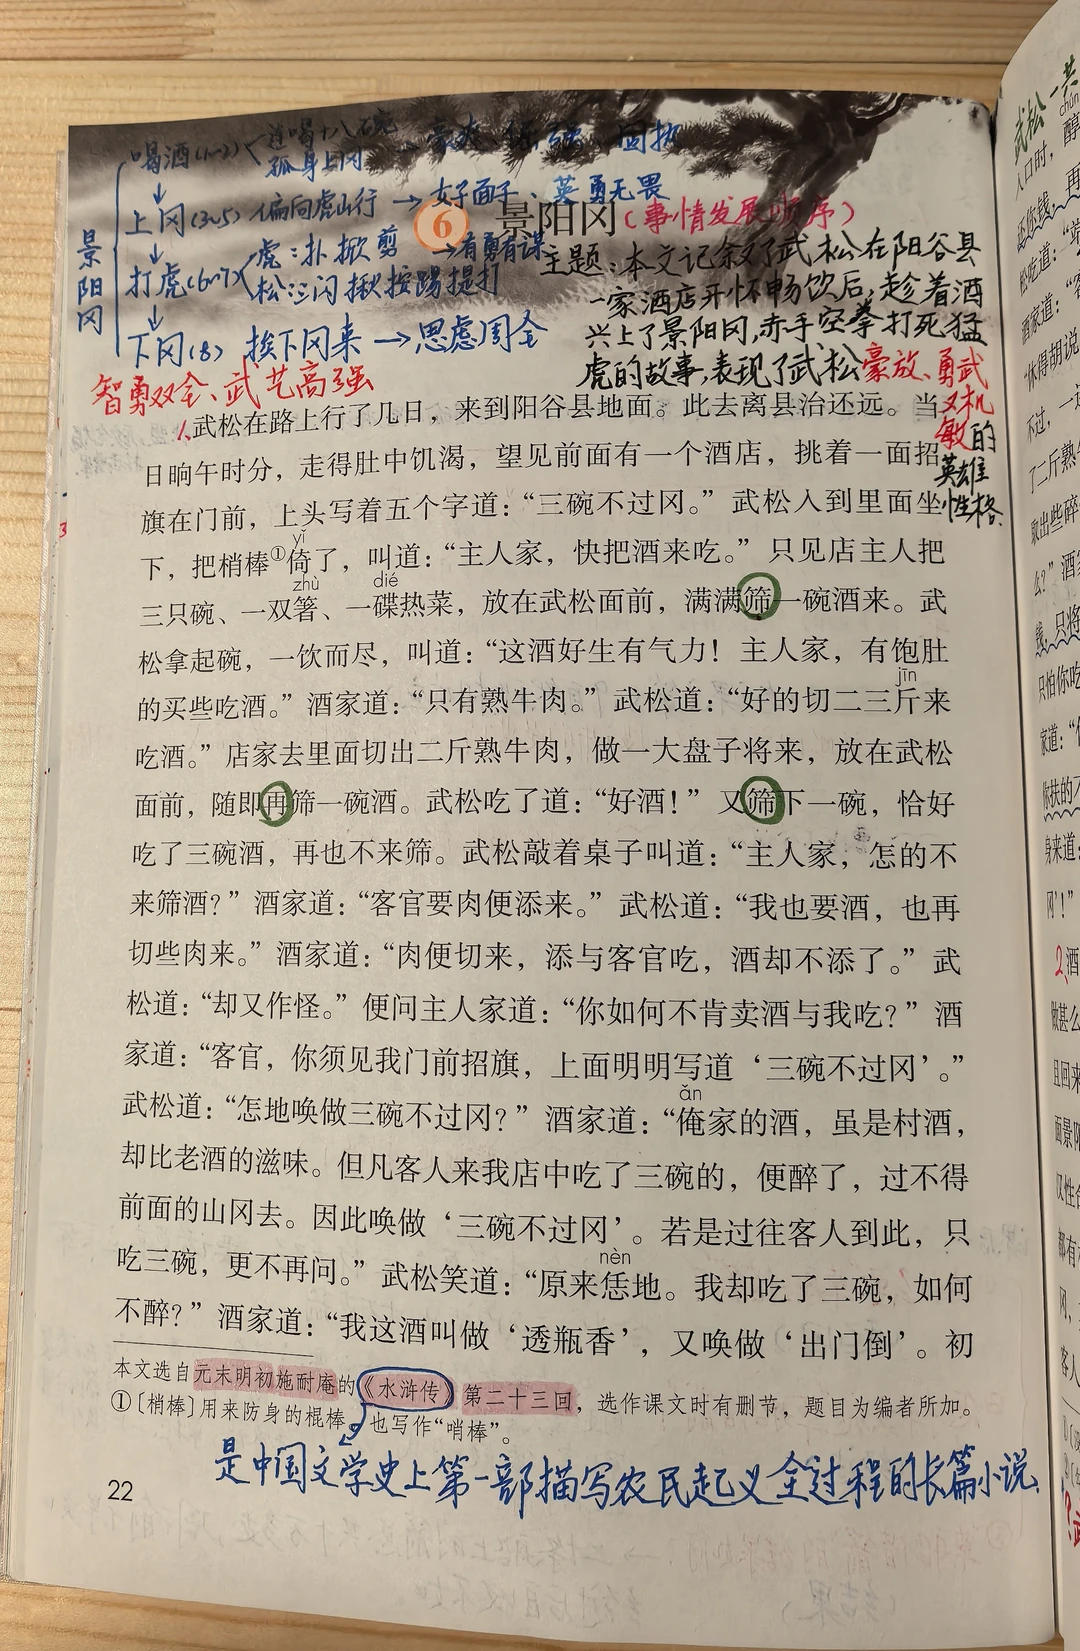 喝酒(1~2) 连喝十八碗 豪爽、倔强、固执
孤身上冈
上冈(3~5) 偏向虎山行 → 好面子、英勇无畏
6 景阳冈(事情发展顺序)
景阳冈
打虎(6~7) 虎:扑 掀 剪 →有勇有谋
松:闪 揪 按 踢 提 打
下冈(8) 挨下冈来 → 思虑周全
智勇双全、武艺高强
主题:本文记叙了武松在阳谷县
一家酒店开怀畅饮后,趁着酒
兴上了景阳冈,赤手空拳打死猛
虎的故事,表现了武松豪放、勇武
又机
敏的
英雄
性格
1.武松在路上行了几日,来到阳谷县地面。此去离县治还远。当
日晌午时分,走得肚中饥渴,望见前面有一个酒店,挑着一面招
旗在门前,上头写着五个字道:“三碗不过冈。” 武松入到里面坐
yǐ
下,把梢棒①倚了,叫道:“主人家,快把酒来吃。” 只见店主人把
zhù dié
三只碗、一双箸、一碟热菜,放在武松面前,满满筛一碗酒来。武
松拿起碗,一饮而尽,叫道:“这酒好生有气力!主人家,有饱肚
jīn
的买些吃酒。” 酒家道:“只有熟牛肉。” 武松道:“好的切二三斤来
吃酒。” 店家去里面切出二斤熟牛肉,做一大盘子将来,放在武松
面前,随即再筛一碗酒。武松吃了道:“好酒!” 又筛下一碗,恰好
吃了三碗酒,再也不来筛。武松敲着桌子叫道:“主人家,怎的不
来筛酒?” 酒家道:“客官要肉便添来。” 武松道:“我也要酒,也再
切些肉来。” 酒家道:“肉便切来,添与客官吃,酒却不添了。” 武
松道:“却又作怪。” 便问主人家道:“你如何不肯卖酒与我吃?” 酒
家道:“客官,你须见我门前招旗,上面明明写道‘三碗不过冈’。”
武松道:“怎地唤做三碗不过冈?” 酒家道:“俺家的酒,虽是村酒,
ǎn
却比老酒的滋味。但凡客人来我店中吃了三碗的,便醉了,过不得
前面的山冈去。因此唤做‘三碗不过冈’。若是过往客人到此,只
nèn
吃三碗,更不再问。” 武松笑道:“原来恁地。我却吃了三碗,如何
不醉?” 酒家道:“我这酒叫做‘透瓶香’,又唤做‘出门倒’。初
本文选自元末明初施耐庵的《水浒传》第二十三回,选作课文时有删节,题目为编者所加。
①〔梢棒〕用来防身的棍棒。也写作“哨棒”。
是中国文学史上第一部描写农民起义全过程的长篇小说.
22
武松
chún
醇
入口时,
还你钱,再
松吃道:
酒家道:
“休得胡说
不过,
了二斤熟
取出些碎
么?” 酒
钱,只将
只怕你吃
家道:
你扶的不
身来道:
冈!”
2.酒
做甚么
且回来
面景阳